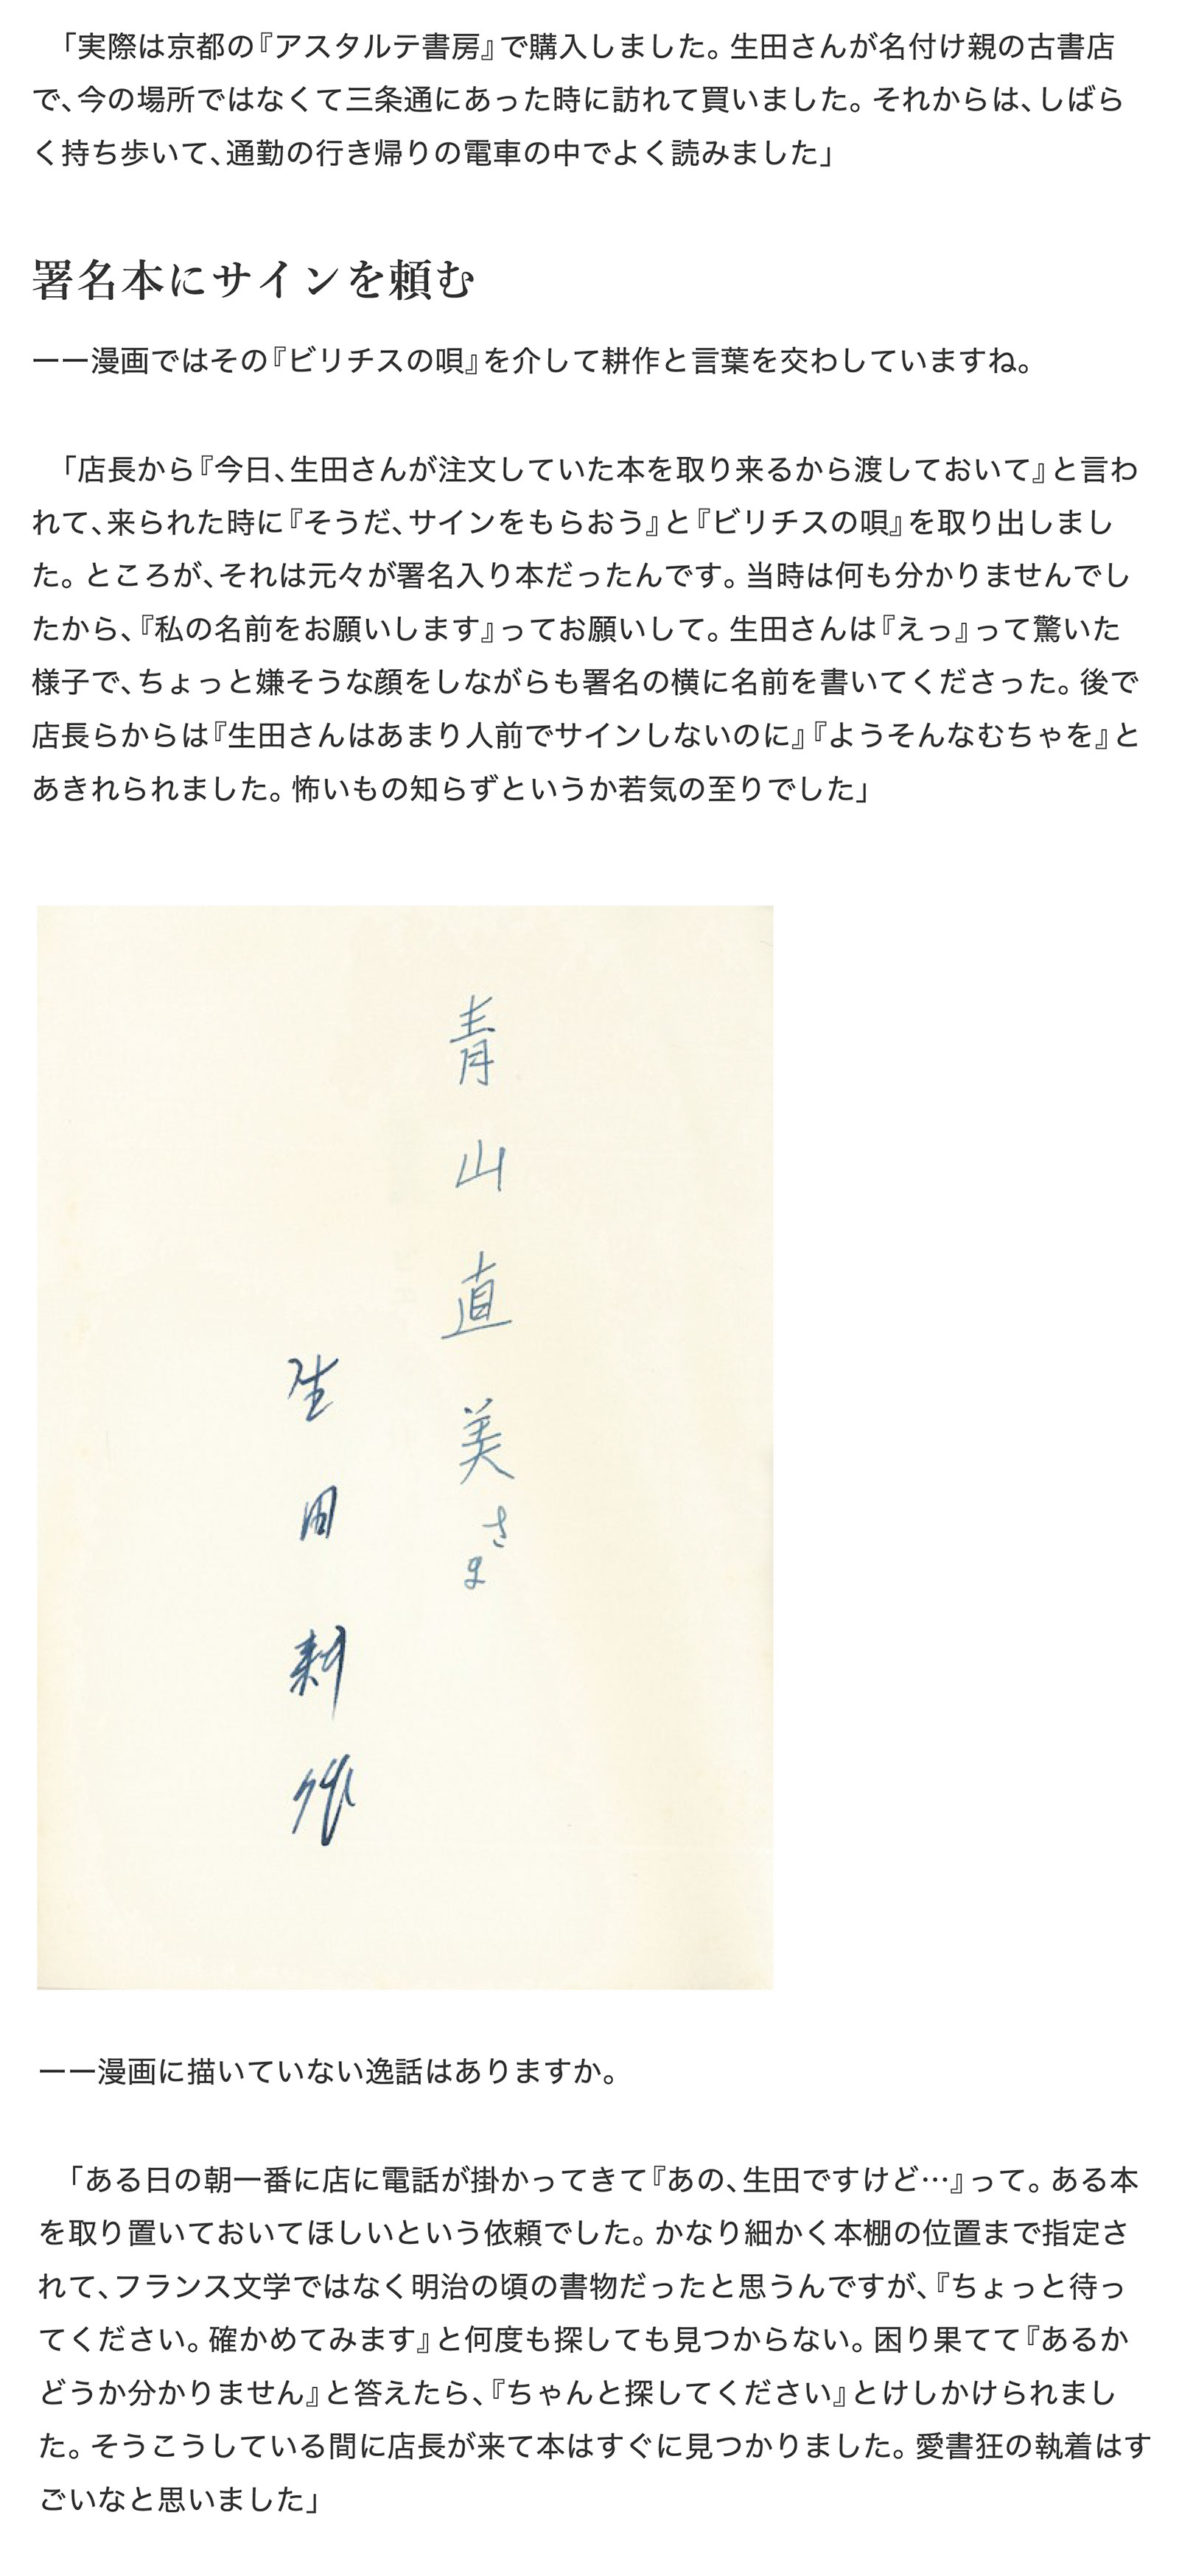 「実際は京都の『アスタルテ書房』で購入しました。生田さんが名付け親の古書店
で、今の場所ではなくて三条通にあった時に訪れて買いました。それからは、しばら
く持ち歩いて、通勤の行き帰りの電車の中でよく読みました」
署名本にサインを頼む
ーー漫画ではその『ビリチスの唄』を介して耕作と言葉を交わしていますね。
「店長から『今日、生田さんが注文していた本を取り来るから渡しておいて』と言わ
れて、来られた時に『そうだ、サインをもらおう』と『ビリチスの唄』を取り出しまし
た。ところが、それは元々が署名入り本だったんです。当時は何も分かりませんでし
たから、『私の名前をお願いします』ってお願いして。生田さんは『えっ』って驚いた
様子で、ちょっと嫌そうな顔をしながらも署名の横に名前を書いてくださった。後で
店長らからは『生田さんはあまり人前でサインしないのに』『ようそんなむちゃを』と
あきれられました。怖いもの知らずというか若気の至りでした」
青山直美さま
生田耕作
ーー漫画に描いていない逸話はありますか。
「ある日の朝一番に店に電話が掛かってきて『あの、生田ですけど…』って。ある本
を取り置いておいてほしいという依頼でした。かなり細かく本棚の位置まで指定さ
れて、フランス文学ではなく明治の頃の書物だったと思うんですが、『ちょっと待っ
てください。確かめてみます』と何度も探しても見つからない。困り果てて『あるか
どうか分かりません』と答えたら、『ちゃんと探してください』とけしかけられまし
た。そうこうしている間に店長が来て本はすぐに見つかりました。愛書狂の執着はす
ごいなと思いました」